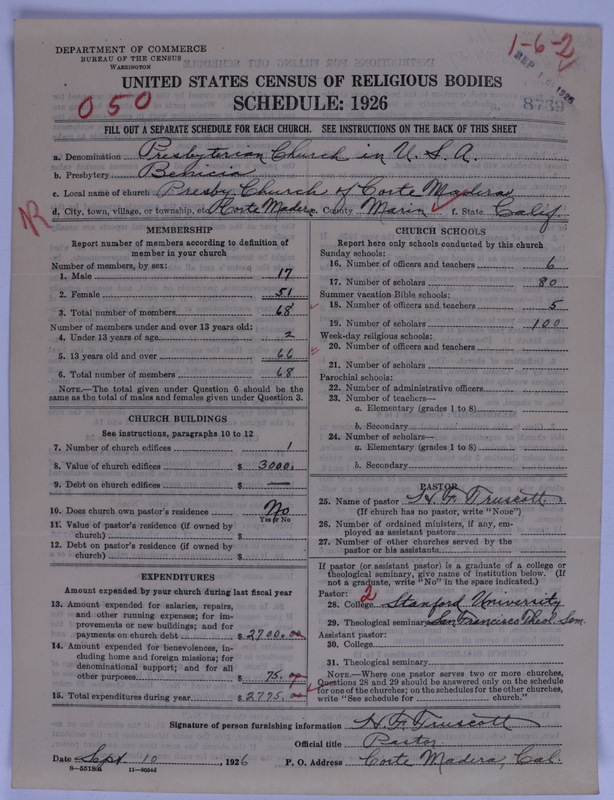 DEPARTMENT OF COMMERCE
BUREAU OF THE CENSUS
WASHINGTON
1-6-2
SEP 1926
8739
UNITED STATES CENSUS OF RELIGIOUS BODIES
050
SCHEDULE: 1926
FILL OUT A SEPARATE SCHEDULE FOR EACH CHURCH. SEE INSTRUCTIONS ON THE BACK OF THIS SHEET
a. Denomination Presbyterian Church in U.S.A.
b. Presbytery Benicia
c. Local name of church Presby. Church of Corte Madera
NR
d. City, town, village, or township, etc. Corte Madera e. County Marin f. State Calif.
MEMBERSHIP
Report number of members according to definition of
member in your church
Number of members, by sex:
1. Male 17
2. Female 51
3. Total number of members 68
Number of members under and over 13 years old:
4. Under 13 years of age 2
5. 13 years old and over 66
6. Total number of members 68
NOTE.—The total given under Question 6 should be
the same as the total of males and females given under Question 3.
CHURCH BUILDINGS
See instructions, paragraphs 10 to 12
7. Number of church edifices 1
8. Value of church edifices $ 3000.
9. Debt on church edifices $ —
10. Does church own pastor's residence No
Yes or No
11. Value of pastor's residence (if owned by
church) $
12. Debt on pastor's residence (if owned by
church) $
EXPENDITURES
Amount expended by your church during last fiscal year
13. Amount expended for salaries, repairs,
and other running expenses; for im-
provements or new buildings; and for
payments on church debt $ 2700.00
14. Amount expended for benevolences, in-
cluding home and foreign missions; for
denominational support; and for all
other purposes $ 75.00
15. Total expenditures during year $ 2775.00
CHURCH SCHOOLS
Report here only schools conducted by this church
Sunday schools:
16. Number of officers and teachers 6
17. Number of scholars 80
Summer vacation Bible schools:
18. Number of officers and teachers 5
19. Number of scholars 100
Week-day religious schools:
20. Number of officers and teachers
21. Number of scholars
Parochial schools:
22. Number of administrative officers
23. Number of teachers—
a. Elementary (grades 1 to 8)
b. Secondary
24. Number of scholars—
a. Elementary (grades 1 to 8)
b. Secondary
PASTOR
25. Name of pastor H. F. Truscott
(If church has no pastor, write "None")
26. Number of ordained ministers, if any, em-
ployed as assistant pastors
27. Number of other churches served by the
pastor or his assistants
If pastor (or assistant pastor) is a graduate of a college or
theological seminary, give name of institution below. (If
not a graduate, write "No" in the space indicated.)
Pastor: 2
28. College Stanford University
29. Theological seminary San Francisco Theol. Sem.
Assistant pastor:
30. College
31. Theological seminary
NOTE.—Where one pastor serves two or more churches,
Questions 28 and 29 should be answered only on the schedule
for one of the churches; on the schedules for the other churches,
write "See schedule for church."
Signature of person furnishing information H. F. Truscott
Official title Pastor
Date Sept 10, 1926 P. O. Address Corte Madera, Cal.
8—5518a 11—9054d